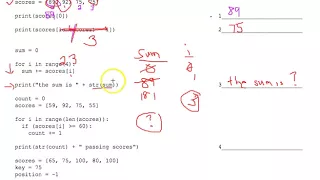 scores = [89, 92, 75]
89
print(scores[0])
1 89
print(scores[
3
2 75
sum = 0
23
sum
i
for i in range(4):
0
0
sum += scores[i]
89
1
print("the sum is " + str(sum))
181
3
3 the sum is ?
count = 0
?
scores = [59, 92, 55, 75]
for i in range(len(scores)):
if (scores[i] >= 60):
count += 1
print(str(count) + " passing scores")
4
scores = [65, 75, 100, 80, 100]
key = 75
position = -1